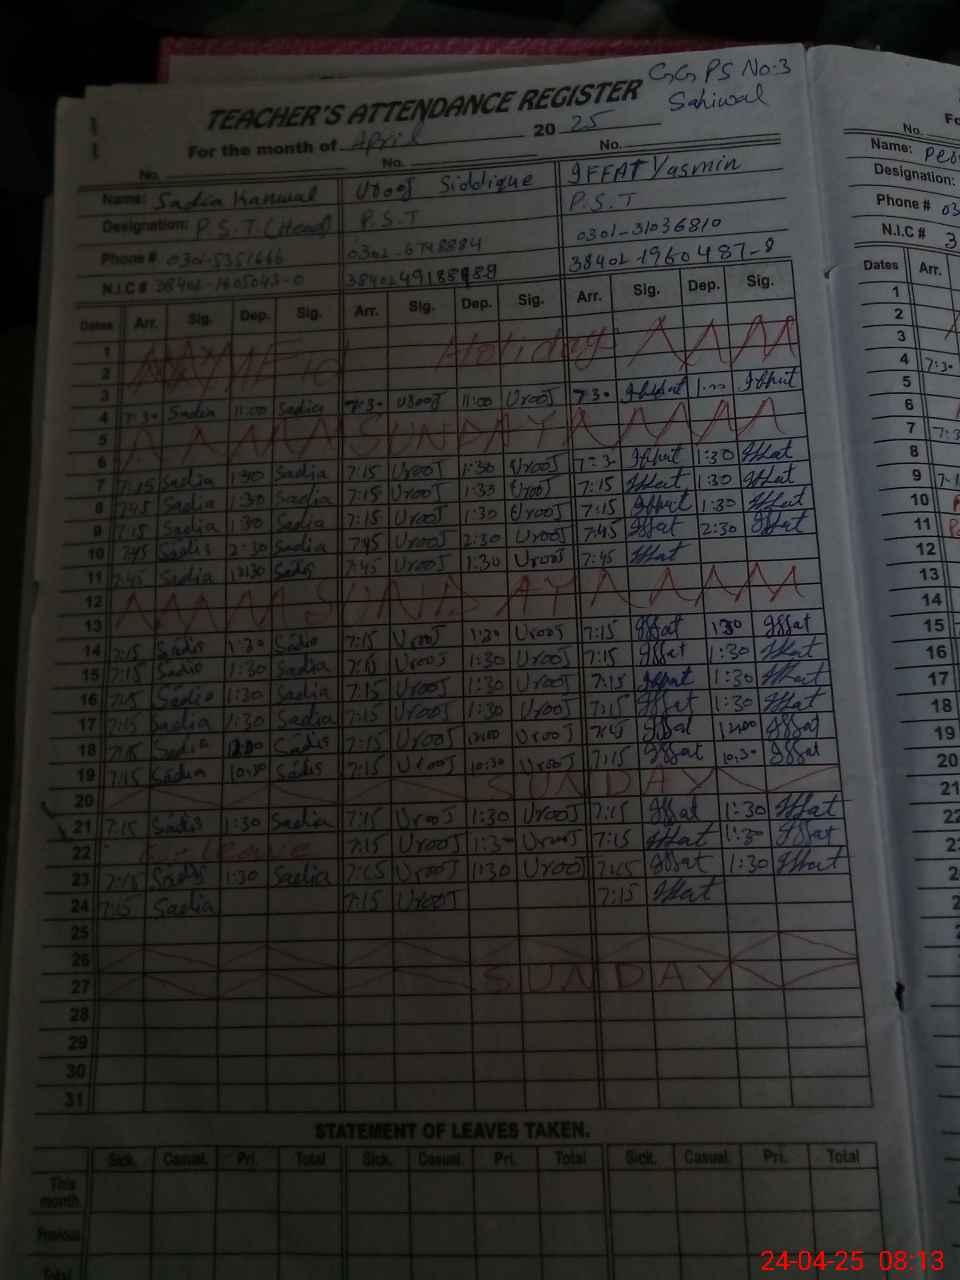 GGPS No:3
Sahiwal
TEACHER'S ATTENDANCE REGISTER
For the month of April 2025
No. No. No.
Name: Sadia Kanwal Urooj Siddique IFFAT Yasmin
Designation: P.S.T (Head) P.S.T P.S.T
Phone #. 0301-31036810
N.I.C # 38402-1960487-8
Dates Arr. Sig. Dep. Sig. Arr. Sig. Dep. Sig. Arr. Sig. Dep. Sig.
1 Eid Holiday
2
3
4 7:30 Sadia 11:00 Sadia 7:30 Urooj 11:00 Urooj 7:30 Iffat Iffat
5 SUNDAY
6
7 7:15 Sadia 1:30 Sadia 7:15 Urooj 1:30 Urooj Iffat 1:30 Iffat
8 Sadia 1:30 Sadia 7:15 Urooj Urooj 7:15 Iffat 1:30 Iffat
9 7:15 Sadia 1:30 Sadia 7:15 Urooj 1:30 Urooj 7:15 Iffat 1:30 Iffat
10 7:45 Sadia 2:30 Sadia 7:45 Urooj 2:30 Urooj 7:45 Iffat 2:30 Iffat
11 7:45 Sadia Sadia 7:45 Urooj 1:30 Urooj 7:45 Iffat
12 SUNDAY
13
14 7:15 Sadia 1:30 Sadia 7:15 Urooj 1:30 Urooj 7:15 Iffat 1:30 Iffat
15 7:15 Sadia 1:30 Sadia 7:15 Urooj 1:30 Urooj 7:15 Iffat 1:30 Iffat
16 7:15 Sadia 1:30 Sadia 7:15 Urooj 1:30 Urooj 7:15 Iffat 1:30 Iffat
17 7:15 Sadia 1:30 Sadia 7:15 Urooj 1:30 Urooj 7:15 Iffat 1:30 Iffat
18 7:15 Sadia 12:00 Sadia 7:15 Urooj 12:00 Urooj Iffat 12:00 Iffat
19 7:15 Sadia 10:30 Sadia 7:15 Urooj 10:30 Urooj 7:15 Iffat 10:30 Iffat
20 SUNDAY
21 7:15 Sadia 1:30 Sadia 7:15 Urooj 1:30 Urooj 7:15 Iffat 1:30 Iffat
22 Leave 7:15 Urooj 1:30 Urooj 7:15 Iffat 1:30 Iffat
23 7:15 Sadia 1:30 Sadia 7:15 Urooj 1:30 Urooj 7:15 Iffat 1:30 Iffat
24 7:15 Sadia 7:15 Urooj 7:15 Iffat
25
26
27 SUNDAY
28
29
30
31
STATEMENT OF LEAVES TAKEN.
Sick. Casual. Pri. Total Sick. Casual. Pri. Total Sick. Casual. Pri. Total
This month.
Previous
Total
No.
Name:
Designation:
Phone # 03
N.I.C # 3
Dates Arr.
1
2
3
4 7:30
5
6
7
8
9
10
11
12
13
14
15
16
17
18
19
20
21
24-04-25 08:13